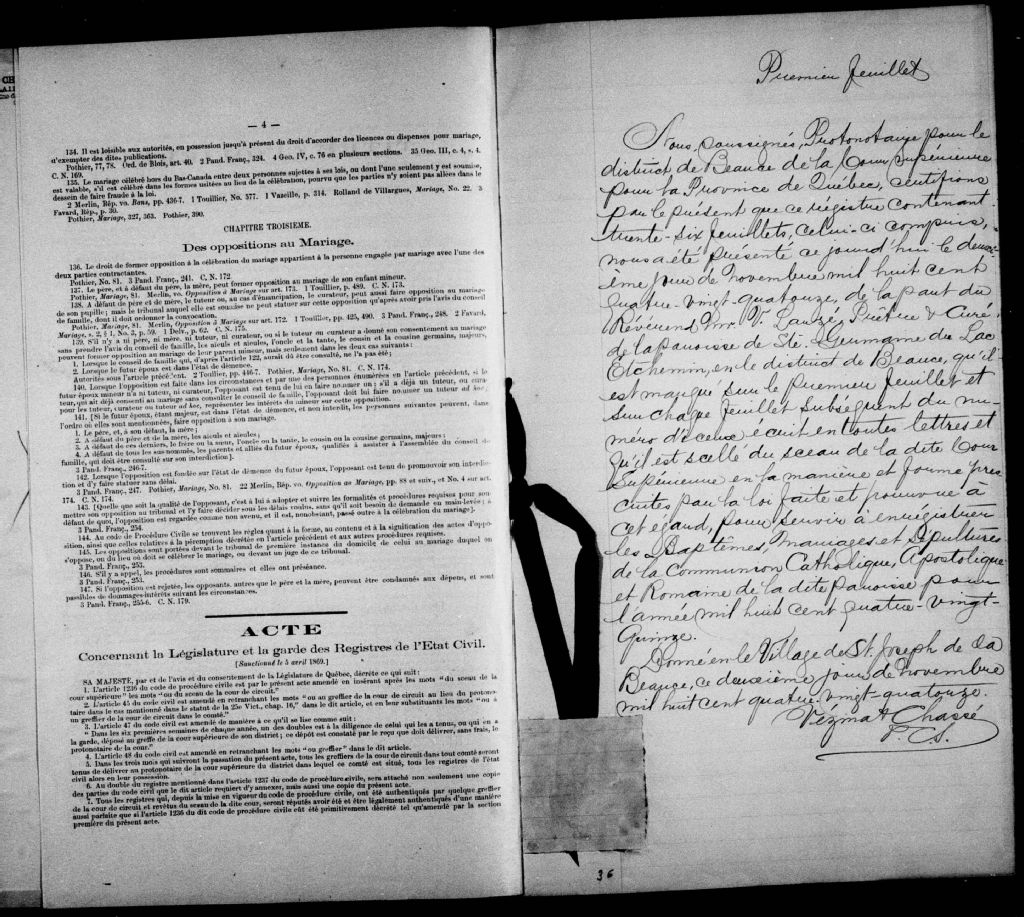 — 4 —
134. Il est loisible aux autorités, en possession jusqu'à présent du droit d'accorder des licences ou dispenses pour mariage,
d'exempter des dites publications.
Pothier, 77, 78. Ord. de Blois, art. 40. 2 Pand. Franç., 324. 4 Geo. IV, c. 76 en plusieurs sections. 35 Geo. III, c. 4, s. 4.
C. N. 169.
135. Le mariage célébré hors du Bas-Canada entre deux personnes sujettes à ses lois, ou dont l'une seulement y est soumise,
est valable, s'il est célébré dans les formes usitées au lieu de la célébration, pourvu que les parties n'y soient pas allées dans le
dessein de faire fraude à la loi.
2 Merlin, Rép. vo. Bans, pp. 436-7. 1 Toullier, No. 577. 1 Vazeille, p. 314. Rolland de Villargues, Mariage, No. 22. 3
Favard, Rép., p. 30.
Pothier, Mariage, 327, 363. Pothier, 390.
CHAPITRE TROISIÈME.
Des oppositions au Mariage.
136. Le droit de former opposition à la célébration du mariage appartient à la personne engagée par mariage avec l'une des
deux parties contractantes.
Pothier, No. 81. 3 Pand. Franç., 241. C. N. 172.
137. Le père, et à défaut du père, la mère, peut former opposition au mariage de son enfant mineur.
Pothier, Mariage, 81. Merlin, vo. Opposition à Mariage sur art. 173. 1 Toullier, p. 489. C. N. 173.
138. A défaut de père et de mère, le tuteur ou, au cas d'émancipation, le curateur, peut aussi faire opposition au mariage
de son pupille; mais le tribunal auquel elle est soumise ne peut statuer sur cette opposition qu'après avoir pris l'avis du conseil
de famille, dont il doit ordonner la convocation.
Pothier, Mariage, 81. Merlin, Opposition à Mariage sur art. 172. 1 Toullier, pp. 425, 490. 3 Pand. Franç., 248. 2 Favard,
Mariage, s. 2, § 1, No. 3, p. 59. 1 Delv., p. 62. C. N. 175.
139. S'il n'y a ni père, ni mère, ni tuteur, ni curateur, ou si le tuteur ou curateur a donné son consentement au mariage
sans prendre l'avis du conseil de famille, les aïeuls et aïeules, l'oncle et la tante, le cousin et la cousine germains, majeurs,
peuvent former opposition au mariage de leur parent mineur, mais seulement dans les deux cas suivants :
1. Lorsque le conseil de famille qui, d'après l'article 122, aurait dû être consulté, ne l'a pas été;
2. Lorsque le futur époux est dans l'état de démence.
Autorités sous l'article précédent. 2 Toullier, pp. 446-7. Pothier, Mariage, No. 81. C. N. 174.
140. Lorsque l'opposition est faite dans les circonstances et par une des personnes énumérées en l'article précédent, si le
futur époux mineur n'a ni tuteur, ni curateur, l'opposant est tenu de lui en faire nommer un ; s'il a déjà un tuteur, ou cura-
teur, qui ait déjà consenti au mariage sans consulter le conseil de famille, l'opposant doit lui faire nommer un tuteur ad hoc,
pour les tuteur, curateur ou tuteur ad hoc, représenter les intérêts du mineur sur cette opposition.
141. [Si le futur époux, étant majeur, est dans l'état de démence, et non interdit, les personnes suivantes peuvent, dans
l'ordre où elles sont mentionnées, faire opposition à son mariage.
1. Le père, et, à son défaut, la mère ;
2. A défaut du père et de la mère, les aïeuls et aïeules ;
3. A défaut de ces derniers, le frère ou la sœur, l'oncle ou la tante, le cousin ou la cousine germains, majeurs ;
4. A défaut de tous les sus-nommés, les parents et alliés du futur époux, qualifiés à assister à l'assemblée du conseil de
famille, qui doit être consulté sur son interdiction].
3 Pand. Franç., 246-7.
142. Lorsque l'opposition est fondée sur l'état de démence du futur époux, l'opposant est tenu de promouvoir son interdic-
tion et d'y faire statuer sans délai.
3 Pand. Franç., 247. Pothier, Mariage, No. 81. 22 Merlin, Rép. vo. Opposition au Mariage, pp. 88 et suiv., et No. 4 sur art.
174. C. N. 174.
143. [Quelle que soit la qualité de l'opposant, c'est à lui à adopter et suivre les formalités et procédures requises pour sou-
mettre son opposition au tribunal et l'y faire décider sous les délais voulus, sans qu'il soit besoin de demande en main-levée ; à
défaut de quoi, l'opposition est regardée comme non avenu, et il est, nonobstant, passé outre à la célébration du mariage].
3 Pand. Franç., 254.
144. Au code de Procédure Civile se trouvent les règles quant à la forme, au contenu et à la signification des actes d'oppo-
sition, ainsi que celles relatives à la péremption décrétée en l'article précédent et aux autres procédures requises.
145. Les oppositions sont portées devant le tribunal de première instance du domicile de celui au mariage duquel on
s'oppose, ou du lieu où doit se célébrer le mariage, ou devant un juge de ce tribunal.
3 Pand. Franç., 253.
146. S'il y a appel, les procédures sont sommaires et elles ont préséance.
3 Pand. Franç., 253.
147. Si l'opposition est rejetée, les opposants, autres que le père et la mère, peuvent être condamnés aux dépens, et sont
passibles de dommages-intérêts suivant les circonstances.
3 Pand. Franç., 255-6. C. N. 179.
ACTE
Concernant la Législature et la garde des Registres de l'Etat Civil.
[Sanctionné le 5 avril 1869.]
SA MAJESTÉ, par et de l'avis et du consentement de la Législature de Québec, décrète ce qui suit :
1. L'article 1236 du code de procédure civile est par le présent acte amendé en insérant après les mots "du sceau de la
cour supérieure" les mots "ou du sceau de la cour de circuit."
2. L'article 45 du code civil est amendé en retranchant les mots "ou au greffier de la cour de circuit au lieu du protono-
taire dans le cas mentionné dans le statut de la 25e Vict., chap. 16," dans le dit article, et en leur substituants les mots "ou à
un greffier de la cour de circuit dans le comté."
3. L'article 47 du code civil est amendé de manière à ce qu'il se lise comme suit :
"Dans les six premières semaines de chaque année, un des doubles est à la diligence de celui qui les a tenu, ou qui en a
la garde, déposé au greffe de la cour supérieure de son district ; ce dépôt est constaté par le reçu que doit délivrer, sans frais, le
protonotaire de la cour."
4. L'article 48 du code civil est amendé en retranchant les mots "ou greffier" dans le dit article.
5. Dans les trois mois qui suivront la passation du présent acte, tous les greffiers de la cour de circuit dans tout comté seront
tenus de délivrer au protonotaire de la cour supérieure du district dans lequel ce comté est situé, tous les registres de l'état
civil alors en leur possession.
6. Au double du registre mentionné dans l'article 1237 du code de procédure civile, sera attaché non seulement une copie
des parties du code civil que le dit article requiert d'y annexer, mais aussi une copie du présent acte.
7. Tous les registres qui, depuis la mise en vigueur du code de procédure civile, ont été authentiqués par quelque greffier
de la cour de circuit et revêtus du sceau de la dite cour, seront réputés avoir été et être légalement authentiqués d'une manière
aussi parfaite que si l'article 1236 du dit code de procédure civile eût été primitivement décrété tel qu'amendé par la section
première du présent acte.
Premier feuillet
Nous, soussignés, Protonotaire pour le
district de Beauce de la Cour Supérieure
pour la Province de Québec, certifions
par le présent que ce registre contenant
trente-six feuillets, celui-ci compris,
nous a été présenté ce jourd'hui le deuxi-
ème jour de novembre mil huit cent
quatre-vingt-quatorze, de la part du
Révérend Mr. V. Lauzé, Prêtre & Curé
de la paroisse de Ste. Germaine du Lac
Etchemin, en le district de Beauce, qu'il
est marqué sur le premier feuillet et
sur chaque feuillet subséquent du nu-
méro d'iceux écrit en toutes lettres et
qu'il est scellé du sceau de la dite Cour
Supérieure en la manière et forme pres-
crites par la loi faite et pourvue à
cet égard, pour servir à enregistrer
les Baptêmes, mariages et Sépultures
de la Communion Catholique, Apostolique
et Romaine de la dite paroisse pour
l'année mil huit cent quatre-vingt-
quinze.
Donné en le Village de St. Joseph de la
Beauce, ce deuxième jour de novembre
mil huit cent quatre-vingt-quatorze.
Vézina & Chassé
P. C. S.
36